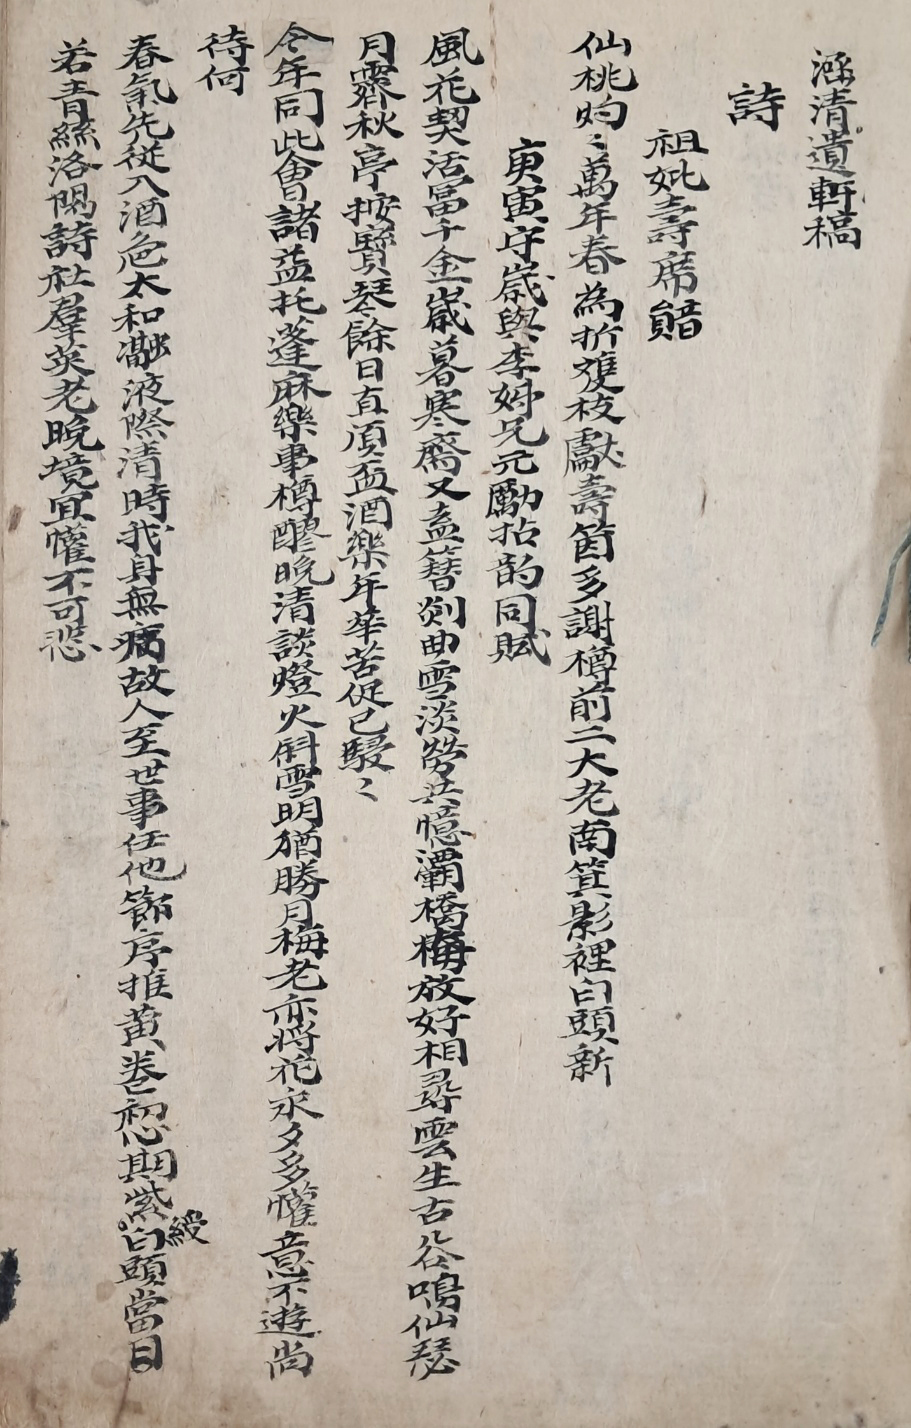 涵清遺軒稿
詩
祖妣壽席韻
仙桃灼〻萬年春為折雙枝獻壽筵多謝樽前二大老南箕影裡白頭新
庚寅守歲與李姊兄元勵拈韵同賦
風花契活當千金歲暮寒齋又盍簪剡曲雪淡勞共憶灞橋梅放好相尋雲生古谷鳴仙瑟
月霽秋亭按寶琴餘日直須盃酒樂年華苦促已駸〻
今年同此會諸益托蓬麻樂事樽醪晩清談燈火斜雪明猶勝月梅老亦將花永夕多懽意不遊尚
待何
春氣先從入酒危太和瀜液際清時我身無痛故人至世事任他節序推黃卷初心期紫綬白頭當日
若青絲洛閩詩社羣英老晩境宜懽不可悲